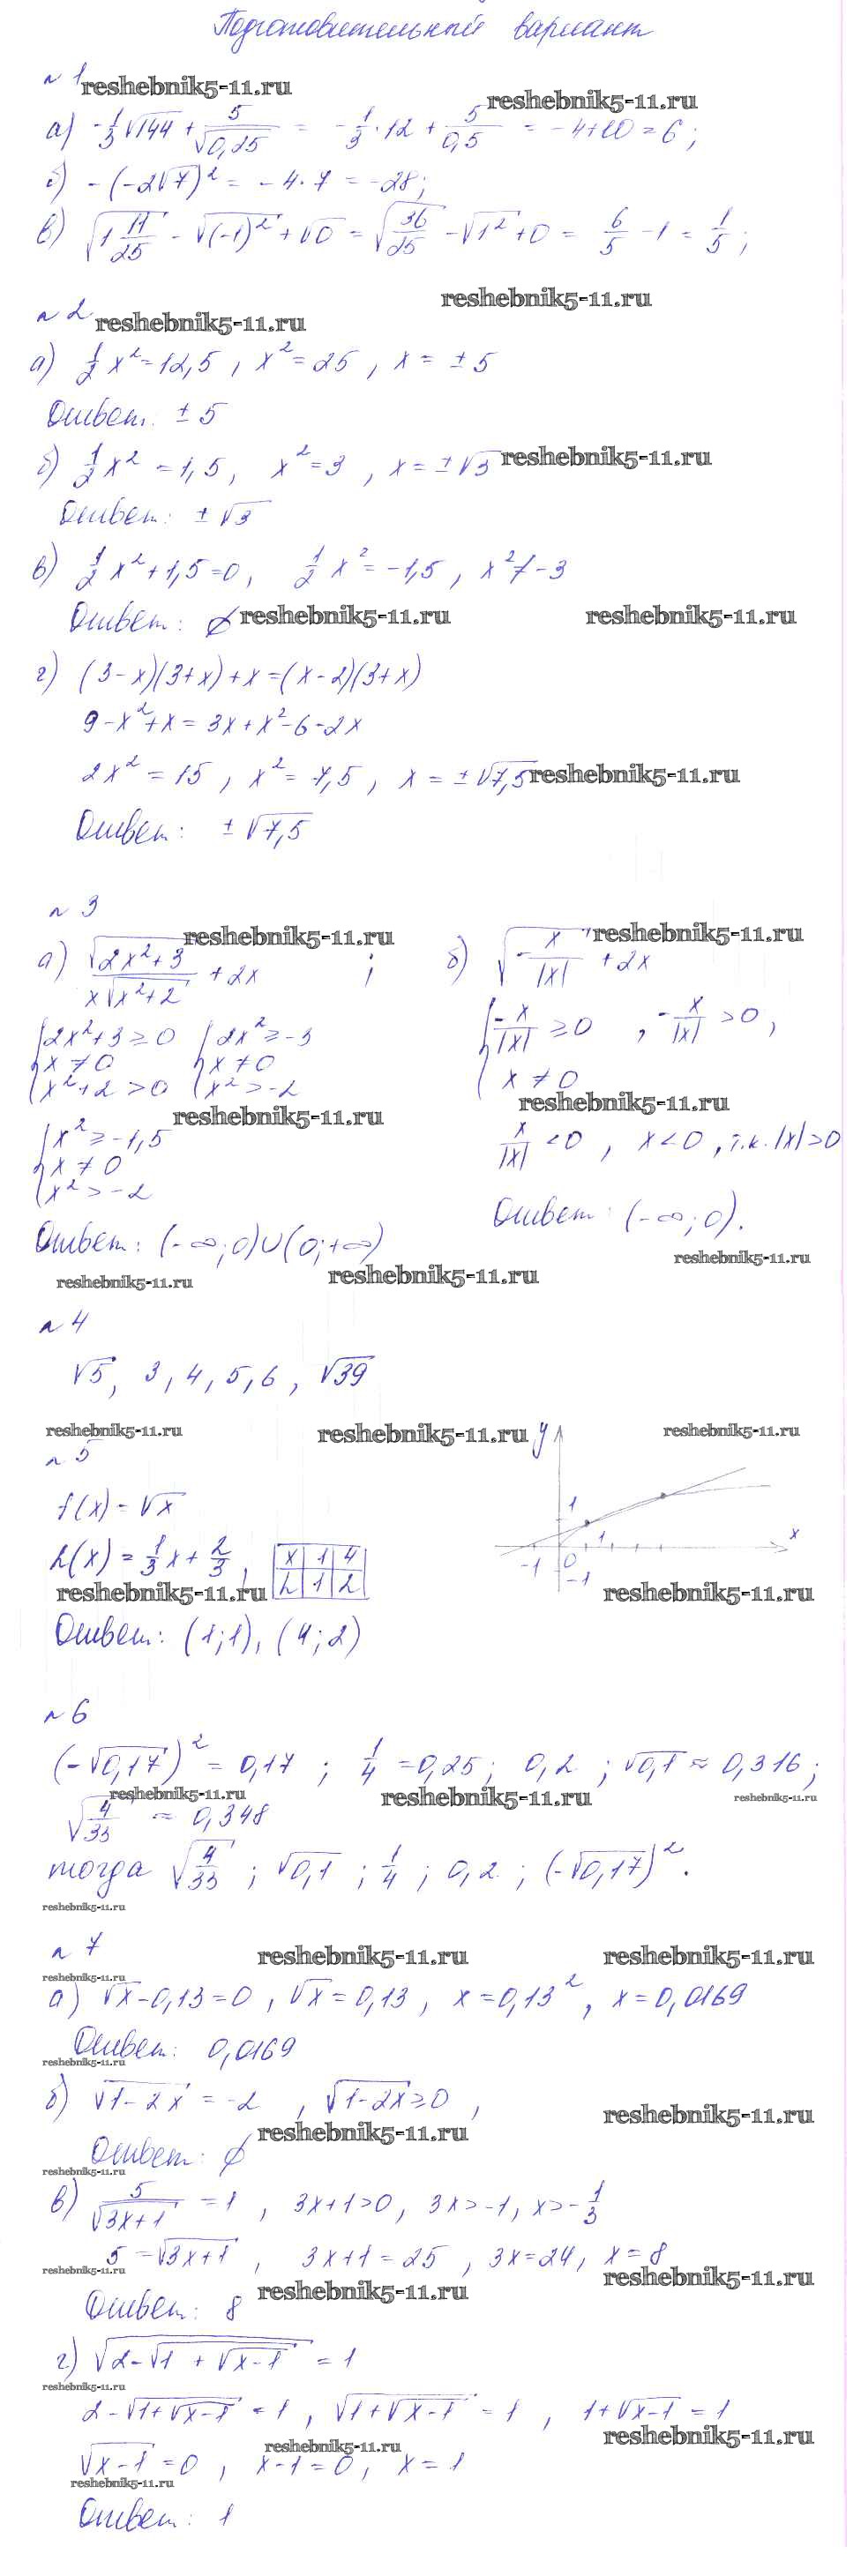 Подготовительный вариант
№ 1 reshebnik5-11.ru
reshebnik5-11.ru
а) -1/3 √144 + 5/√0,25 = -1/3 · 12 + 5/0,5 = -4+10 = 6;
б) -(-2√7)² = -4·7 = -28;
в) √(1 11/25) - √(-1)² + √0 = √(36/25) - √1² + 0 = 6/5 - 1 = 1/5;
reshebnik5-11.ru
№ 2 reshebnik5-11.ru
а) 1/2 x² = 12,5, x² = 25, x = ±5
Ответ: ±5
б) 1/2 x² = 1,5, x² = 3, x = ±√3 reshebnik5-11.ru
Ответ: ±√3
в) 1/2 x² + 1,5 = 0, 1/2 x² = -1,5, x² ≠ -3
Ответ: ∅ reshebnik5-11.ru reshebnik5-11.ru
г) (3-x)(3+x)+x=(x-2)(3+x)
9-x²+x = 3x+x²-6-2x
2x² = 15, x² = 7,5, x = ±√7,5 reshebnik5-11.ru
Ответ: ±√7,5
№ 3
reshebnik5-11.ru reshebnik5-11.ru
а) √(2x²+3)/(x√(x²+2)) + 2x ; б) √(-x/|x|) + 2x
{2x²+3 ≥ 0 {2x² ≥ -3 {-x/|x| ≥ 0 , -x/|x| > 0,
x ≠ 0 x ≠ 0 x ≠ 0
x²+2 > 0 x² > -2
reshebnik5-11.ru reshebnik5-11.ru
{x² ≥ -1,5 x/|x| < 0, x < 0, т.к. |x| > 0
x ≠ 0
x² > -2
Ответ: (-∞;0)∪(0;+∞) Ответ: (-∞;0).
reshebnik5-11.ru reshebnik5-11.ru reshebnik5-11.ru
№ 4
√5, 3, 4, 5, 6, √39
reshebnik5-11.ru reshebnik5-11.ru y reshebnik5-11.ru
№ 5
f(x) = √x
h(x) = 1/3 x + 2/3,
x 1 4
h 1 2
1
-1 0 1 x
-1
reshebnik5-11.ru reshebnik5-11.ru
Ответ: (1;1), (4;2)
№ 6
(-√0,17)² = 0,17 ; 1/4 = 0,25; 0,2 ; √0,1 ≈ 0,316;
reshebnik5-11.ru reshebnik5-11.ru reshebnik5-11.ru
√(4/33) ≈ 0,348
тогда √(4/33) ; √0,1 ; 1/4 ; 0,2 ; (-√0,17)².
reshebnik5-11.ru
№ 7 reshebnik5-11.ru reshebnik5-11.ru
reshebnik5-11.ru
а) √x-0,13=0, √x=0,13, x=0,13², x=0,0169
Ответ: 0,0169
reshebnik5-11.ru
б) √(1-2x) = -2 , √(1-2x) ≥ 0 ,
reshebnik5-11.ru
Ответ: ∅ reshebnik5-11.ru
reshebnik5-11.ru
в) 5/√(3x+1) = 1, 3x+1>0, 3x>-1, x>-1/3
5 = √(3x+1), 3x+1 = 25, 3x=24, x=8
reshebnik5-11.ru reshebnik5-11.ru reshebnik5-11.ru
Ответ: 8
г) √(2-√(1+√(x-1))) = 1
reshebnik5-11.ru
2-√(1+√(x-1)) = 1, √(1+√(x-1)) = 1, 1+√(x-1) = 1
reshebnik5-11.ru reshebnik5-11.ru
√(x-1) = 0, x-1=0, x=1
reshebnik5-11.ru
Ответ: 1